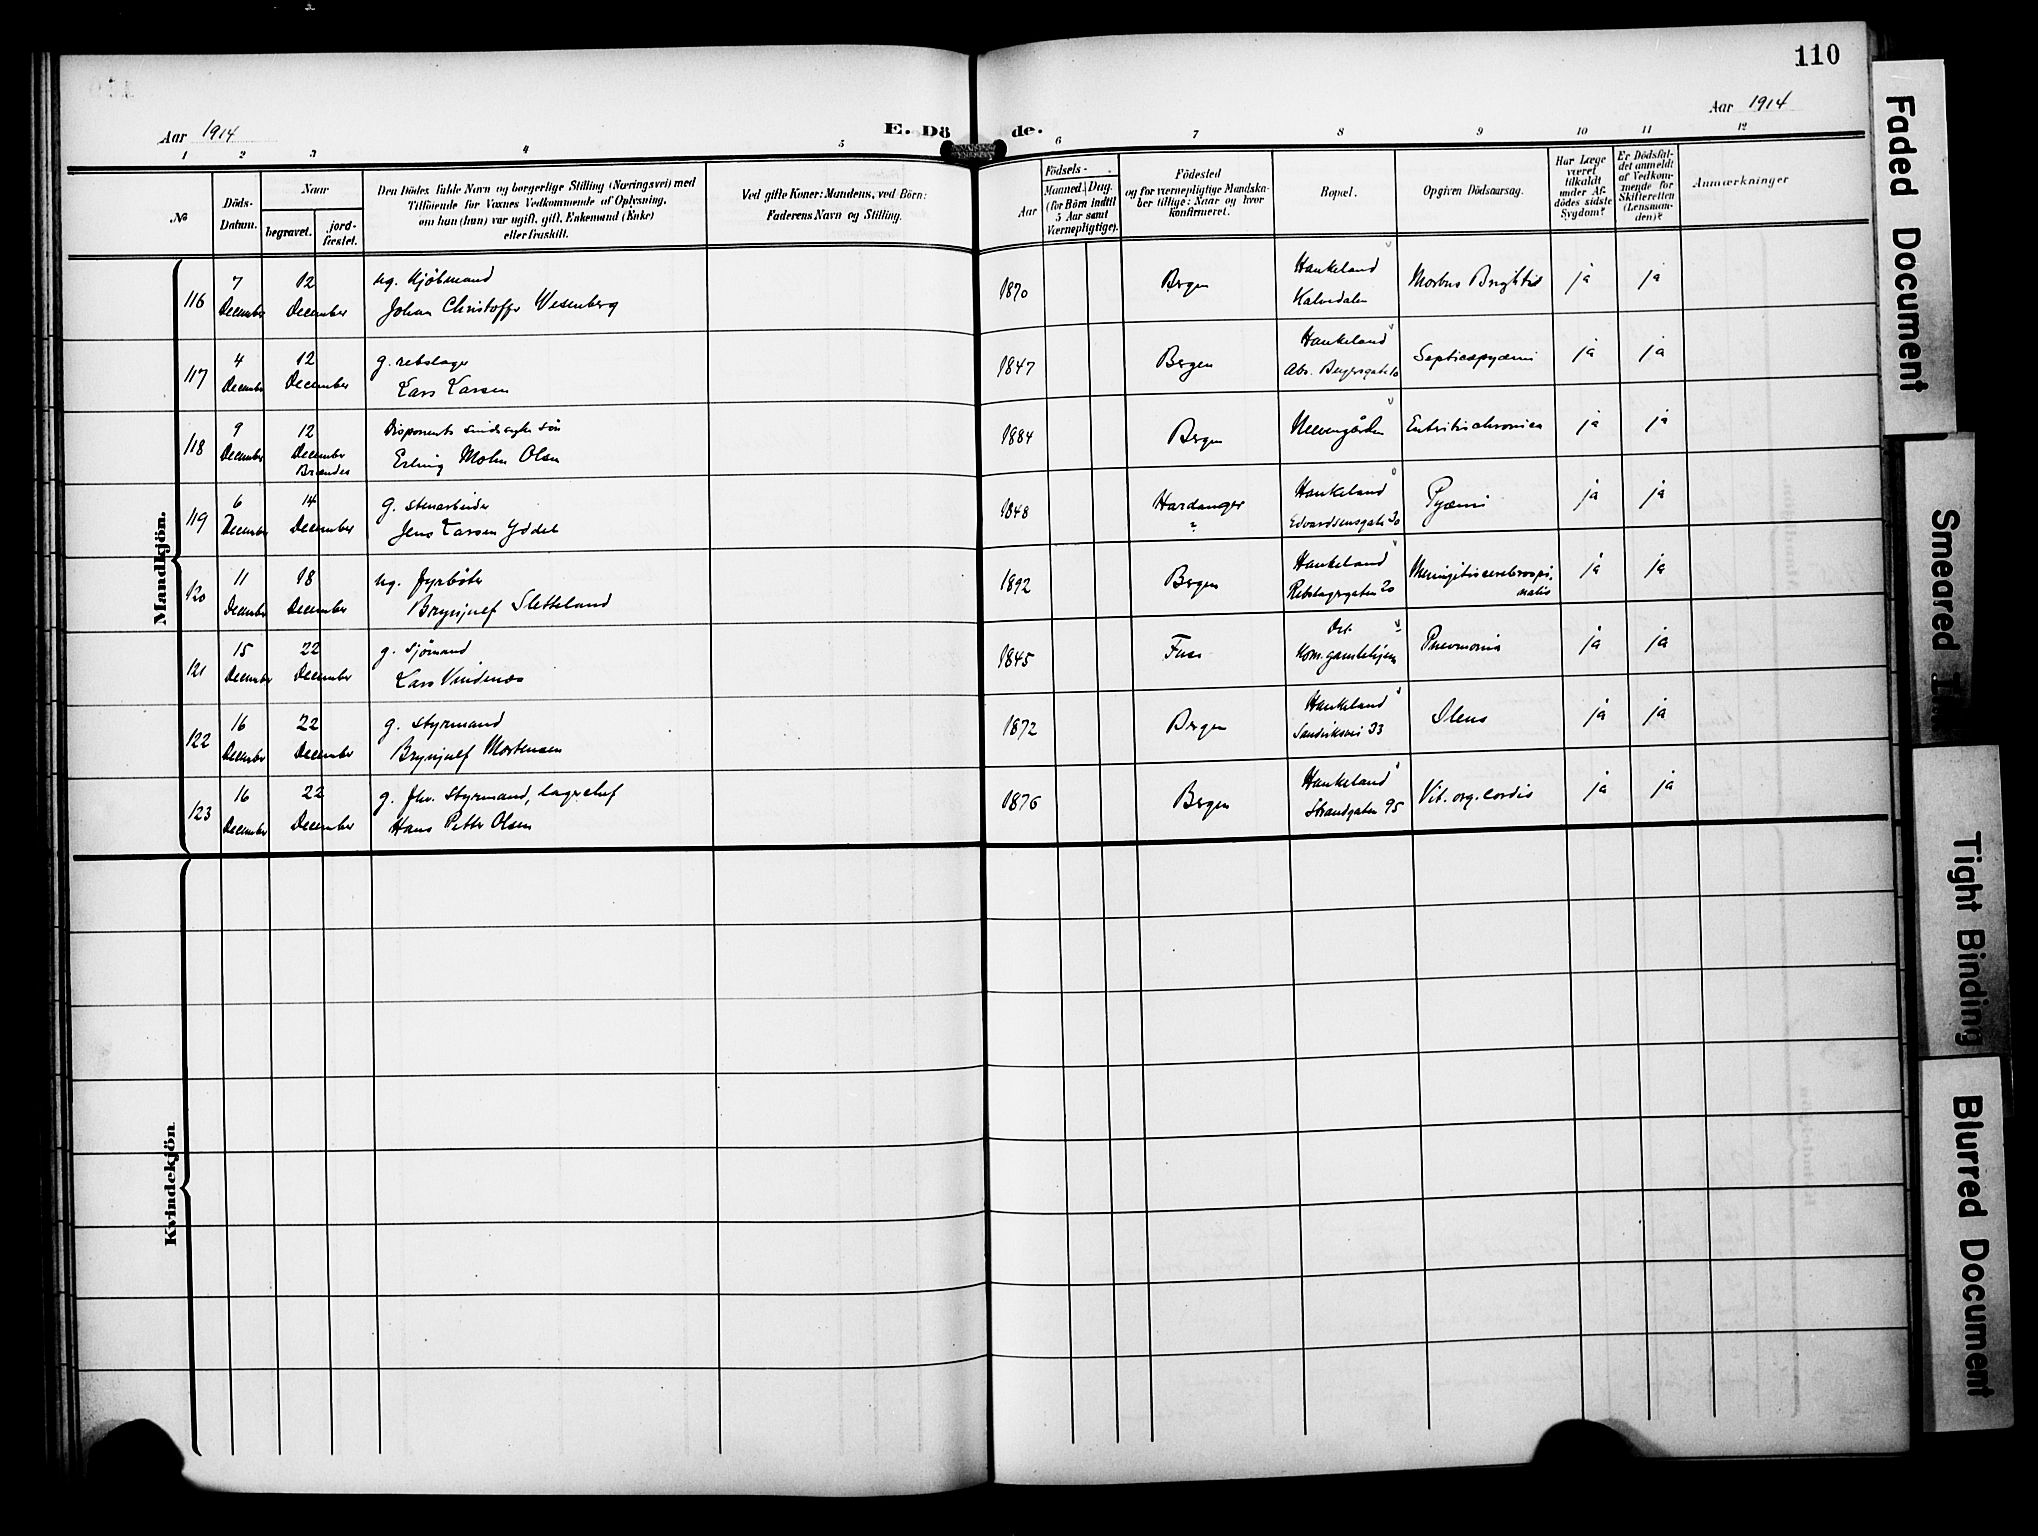 110
Aar 1914
E. Dö de.
Aar 1914
1 2 3 4 5 6 7 8 9 10 11 12
№
Döds-
Datum.
Naar
begravet.
jord-
fæstet.
Den Dödes fulde Navn og borgerlige Stilling (Næringsvei) med
Tilföiende for Voxnes Vedkommende af Oplysning,
om han (hun) var ugift, gift, Enkemand (Enke)
eller fraskilt.
Ved gifte Koner: Mandens, ved Börn:
Faderens Navn og Stilling.
Födsels-
Aar
Maaned. Dag.
(for Börn indtil
5 Aar samt
Værnepligtige).
Födested
og for værnepligtige Mandska-
ber tillige: Naar og hvor
konfirmeret.
Bopæl.
Opgiven Dödsaarsag.
Har Læge
været
tilkaldt
under Af-
dödes sidste
Sygdom?
Er Dödsfal-
det anmeldt
af Vedkom-
mende for
Skifteretten
(Lensman-
den)?
Anmærkninger
Mandkjön.
116
7
December
12
December
ug. Kjøbmand
Johan Christoffer Wesenberg
1870
Bergen
Haukeland
Kalvedalen
Morbus Brightii
ja
ja
117
4
December
12
December
g. rebslager
Lars Larsen
1847
Bergen
Haukeland
Septicopyæmi
ja
ja
118
9
December
12
December
Brændes
Disponents sindssyke søn
Erling Mohn Olsen
1884
Bergen
Neevengården
Enteritis chronica
ja
ja
119
6
December
14
December
g. stenarbeider
Jens Larsen
1848
Hardanger
?
Haukeland
Edvardsensgate 30
Pyæmi
ja
ja
120
11
December
18
December
ug. fyrbøter
Brynjulf Sletteland
1892
Bergen
Haukeland
Rebslagergaten 20
Meningitis cerebrospi-
nalis
ja
ja
121
15
December
22
December
g. sjømand
Lars Vindenes
1845
Fuse
Det
Kom. gamlehjem
Pneumonia
ja
ja
122
16
December
22
December
g. styrmand
Brynjulf Mortensen
1872
Bergen
Haukeland
Sandviksvei 33
Ileus
ja
ja
123
16
December
22
December
g. fhv. styrmand, lagerchef
Hans Petter Olsen
1876
Bergen
Haukeland
Strandgaten 95
Vit. org. cordis
ja
ja
Kvindekjön
Faded Document
Smeared
Tight Binding
Blurred Document